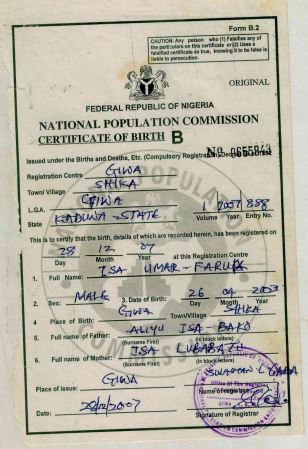 Form B.2
CAUTION: Any person who (1) Falsifies any of
the particulars on this certificate or (2) Uses a
falsified certificate as true, knowing it to be false is
liable to persecution.
ORIGINAL
FEDERAL REPUBLIC OF NIGERIA
NATIONAL POPULATION COMMISSION
CERTIFICATE OF BIRTH B
No
Issued under the Births and Deaths, Etc. (Compulsory Registration) Decree
Registration Centre GIWA
Town/Village SHIKA
L.G.A. GIWA
State KADUNA-STATE 1 2007 888
Volume Year Entry No.
This is to certify that the birth, details of which are recorded herein, has been registered on
28 12 07
Day Month Year at this Registration Centre
1. Full Name: ISA UMAR-FARUK
2. Sex: MALE 3. Date of Birth: 26 04 2003
Day Month Year
4. Place of Birth: GIWA Town/Village SHIKA
5. Full name of Father: ALIYU ISA-BAKO
(Surname First) (In block letters)
6. Full name of Mother: ISA LUBABATU
(Surname First) (In block letters)
Place of issue: GIWA
Name of registrar
Date: 28/12/2007
Signature of Registrar